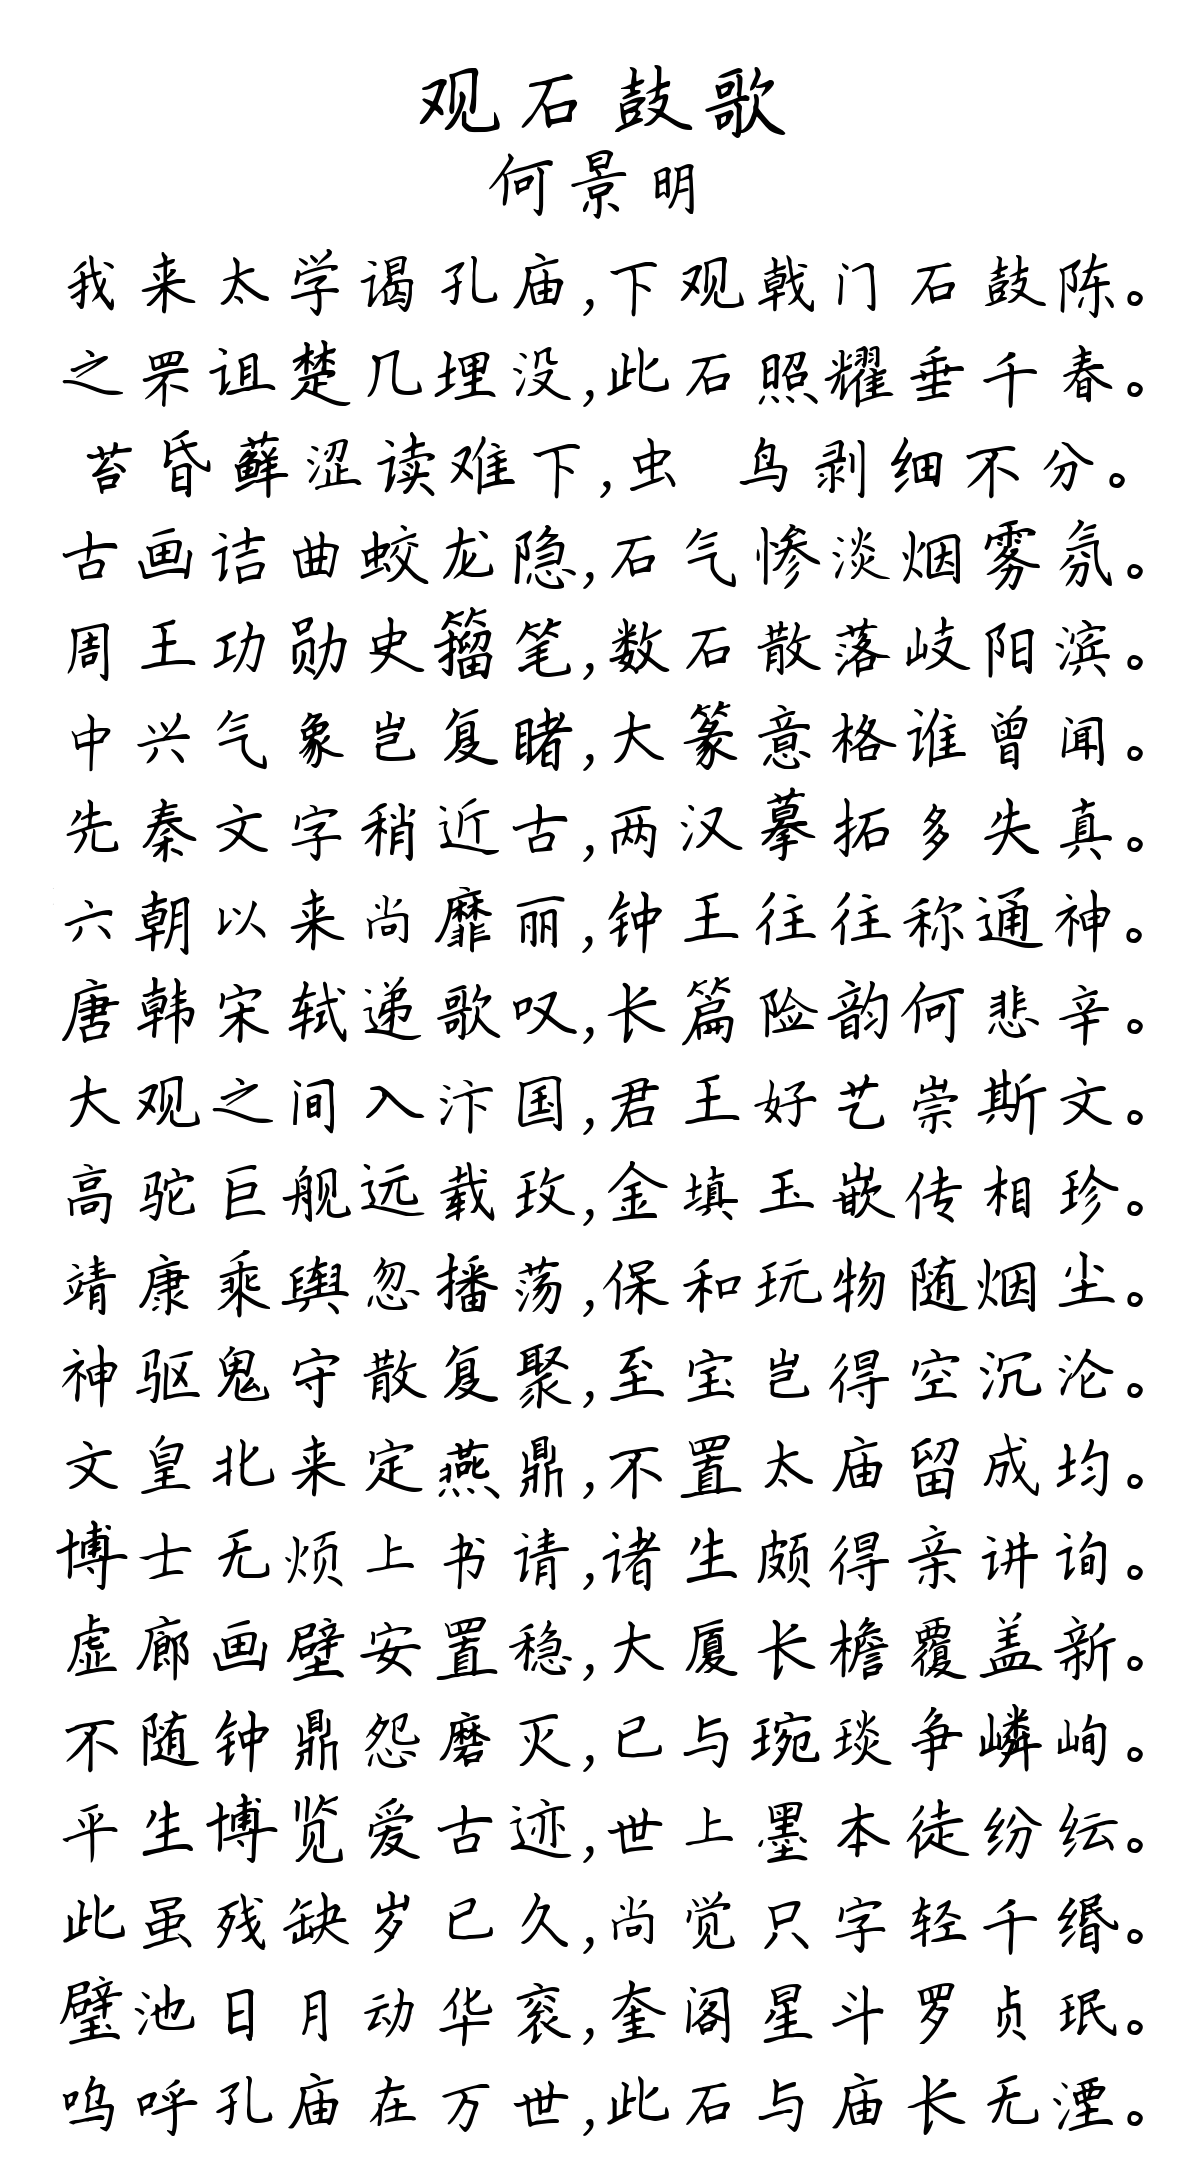 观石鼓歌
何景明
我来太学谒孔庙,下观戟门石鼓陈。
之罘诅楚几埋没,此石照耀垂千春。
苔昏藓涩读难下,虫 鸟剥细不分。
古画诘曲蛟龙隐,石气惨淡烟雾氛。
周王功勋史籀笔,数石散落岐阳滨。
中兴气象岂复睹,大篆意格谁曾闻。
先秦文字稍近古,两汉摹拓多失真。
六朝以来尚靡丽,钟王往往称通神。
唐韩宋轼递歌叹,长篇险韵何悲辛。
大观之间入汴国,君王好艺崇斯文。
高驼巨舰远载玫,金填玉嵌传相珍。
靖康乘舆忽播荡,保和玩物随烟尘。
神驱鬼守散复聚,至宝岂得空沉沦。
文皇北来定燕鼎,不置太庙留成均。
博士无烦上书请,诸生颇得亲讲询。
虚廊画壁安置稳,大厦长檐覆盖新。
不随钟鼎怨磨灭,已与琬琰争嶙峋。
平生博览爱古迹,世上墨本徒纷纭。
此虽残缺岁已久,尚觉只字轻千缗。
璧池日月动华衮,奎阁星斗罗贞珉。
呜呼孔庙在万世,此石与庙长无湮。